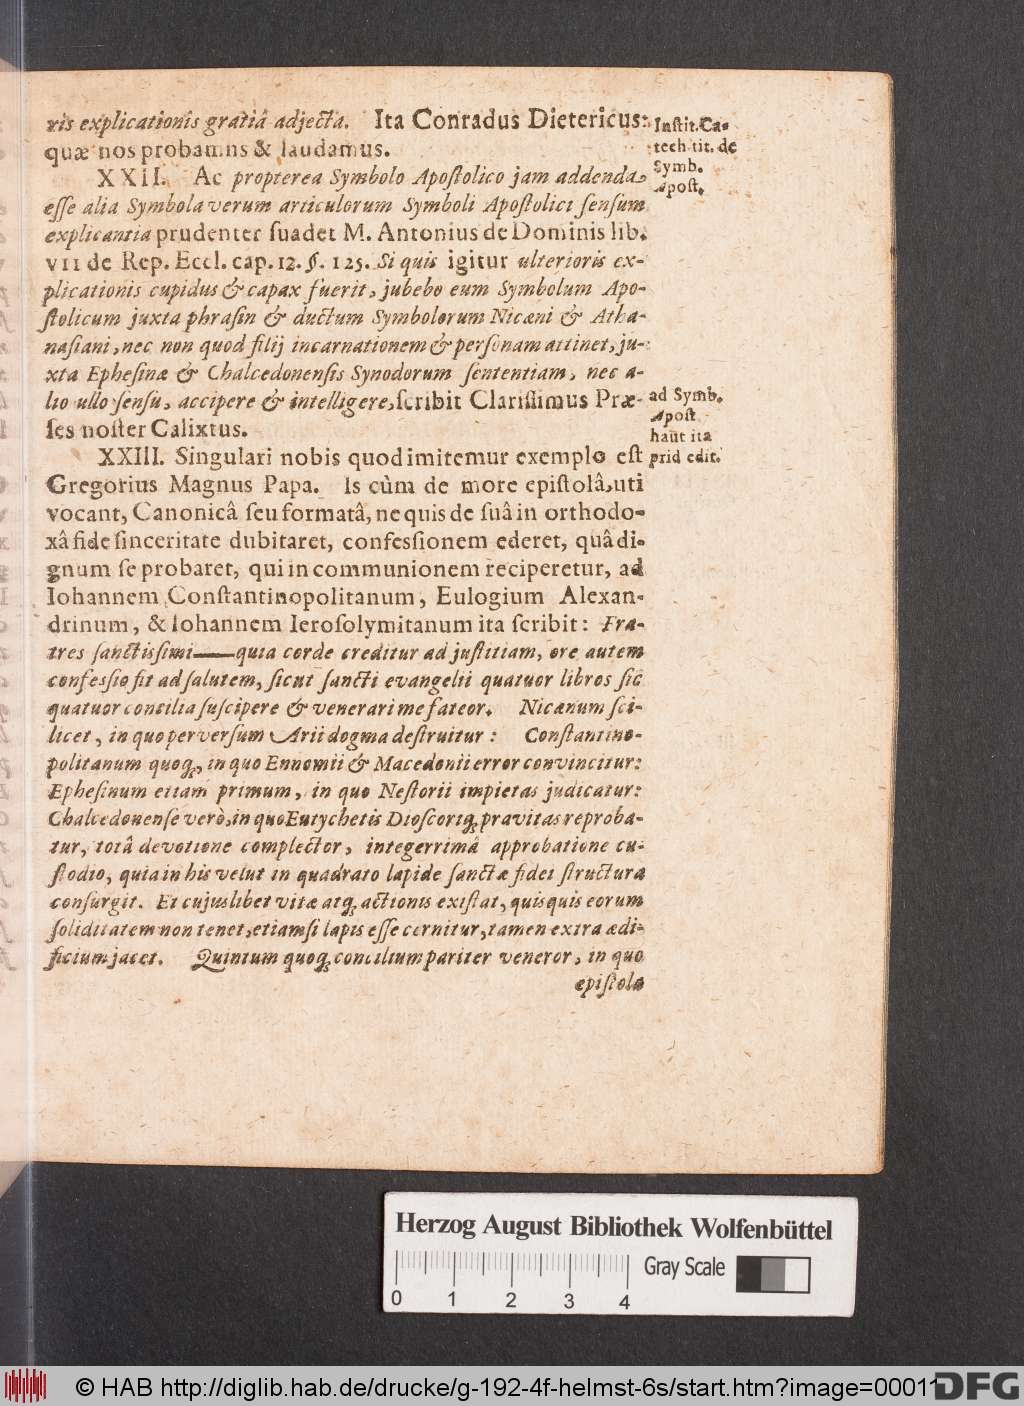 ris explicationis gratiâ adjecta. Ita Conradus Dietericus:
quæ nos probamus & laudamus.
Instit. Ca-
tech. tit. de
Symb.
Apost.
XXII. Ac propterea Symbolo Apostolico jam addenda
esse alia Symbola verum articulorum Symboli Apostolici sensum
explicantia prudenter suadet M. Antonius de Dominis lib.
VII de Rep. Eccl. cap. 12. §. 125. Si quis igitur ulterioris ex-
plicationis cupidus & capax fuerit, jubebo eum Symbolum Apo-
stolicum juxta phrasin & ductum Symbolorum Nicæni & Atha-
nasiani, nec non quod filij incarnationem & personam attinet, ju-
xta Ephesinæ & Chalcedonensis Synodorum sententiam, nec a-
lio ullo sensu, accipere & intelligere, scribit Clarissimus Præ-
ses noster Calixtus.
ad Symb.
Apost.
haut ita
prid edit.
XXIII. Singulari nobis quod imitemur exemplo est
Gregorius Magnus Papa. Is cùm de more epistolâ, uti
vocant, Canonicâ seu formatâ, ne quis de suâ in orthodo-
xâ fide sinceritate dubitaret, confessionem ederet, quâ di-
gnum se probaret, qui in communionem reciperetur, ad
Iohannem Constantinopolitanum, Eulogium Alexan-
drinum, & Iohannem Ierosolymitanum ita scribit: Fra-
tres sanctissimi — quia corde creditur ad justitiam, ore autem
confessio fit ad salutem, sicut sancti evangelii quatuor libros sic
quatuor concilia suscipere & venerari me fateor. Nicænum sci-
licet, in quo perversum Arii dogma destruitur: Constantino-
politanum quoq;, in quo Ennomii & Macedonii error convincitur:
Ephesinum etiam primum, in quo Nestorii impietas judicatur:
Chalcedonense verò, in quo Eutychetis Dioscoriq; pravitas reproba-
tur, totâ devotione complector, integerrimâ approbatione cu-
stodio, quia in his velut in quadrato lapide sanctæ fidei structura
consurgit. Et cujuslibet vitæ atq; actionis existat, quisquis eorum
soliditatem non tenet, etiamsi lapis esse cernitur, tamen extra ædi-
ficium jacet. Quintum quoq; concilium pariter veneror, in quo
epistola
Herzog August Bibliothek Wolfenbüttel
Gray Scale
0 1 2 3 4
© HAB http://diglib.hab.de/drucke/g-192-4f-helmst-6s/start.htm?image=00011
DFG